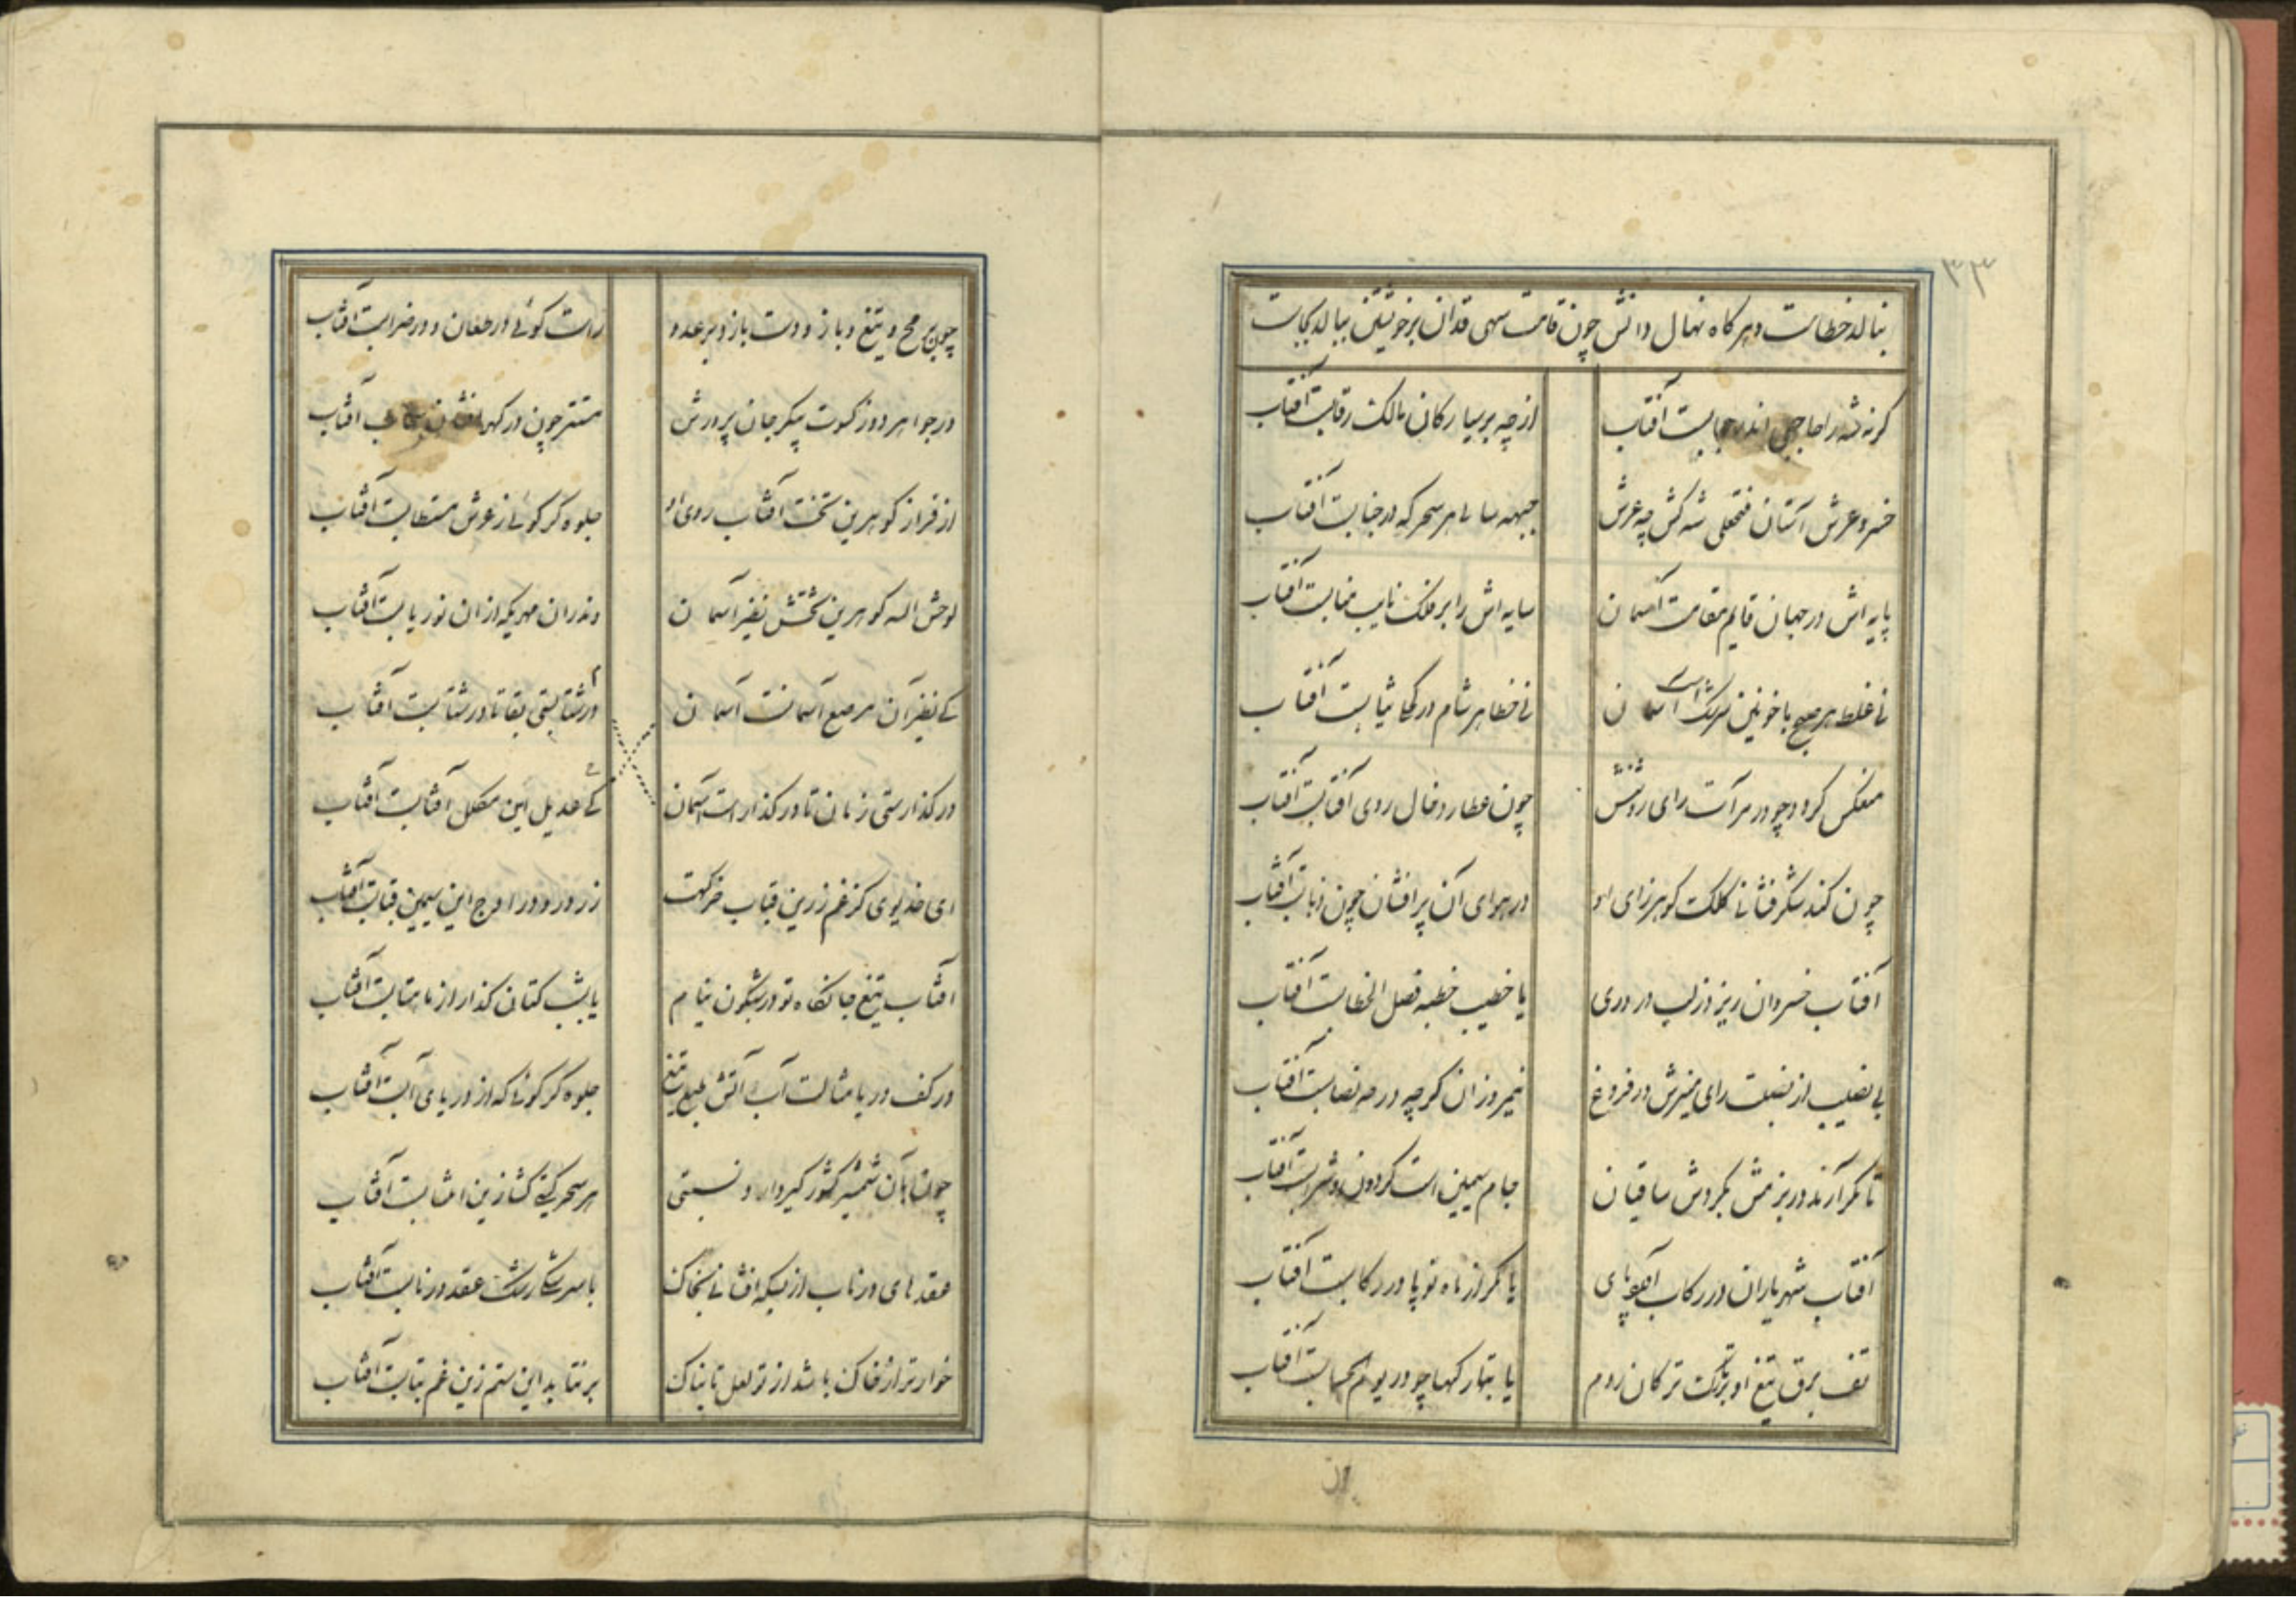 ۳۳
بنالد خطاست و هر گاه نهال دانش چون قامت سهی قدان بر خویشتن ببالد بجاست
گرنه شه را حاجبی اندر حجابست آفتاب
از چه بر سیارگان مالک رقابست آفتاب
خسرو عرش آستان فتحعلی شه کش چه عرش
جبهه سا بی هر سحرگه در جنابست آفتاب
پایه اش در جهان قایم مقامست آسمان
سایه اش را بر فلک نایب منابست آفتاب
نی غلط هر صبح با خونین سرشک است آسمان
نی خطا هر شام در کحلی ثیابست آفتاب
منعکس گردد چو در مرآت رای روشنش
چون عطارد خال روی آفتابست آفتاب
چون کند شکرفشانی کلک گوهرزای او
در هوای آن پرافشان چون ذبابست آفتاب
آفتاب خسروان ریزد ز لب در دری
یا خطیب خطبه فصل الخطابست آفتاب
بی نصیب از نصیب رای منیرش در فروغ
نیمروزان گرچه در حد نصابست آفتاب
تا مگر آرند در بزمش بگردش ساقیان
جام سیمین است گردون و شرابست آفتاب
آفتاب شهریاران در رکاب آورد پای
یا مگر از ماه نو پا در رکابست آفتاب
تف برق تیغ او بر ترک ترکان روم
یا بتارکها چو در یوم الحسابست آفتاب
چون برمح و تیغ و بازو دست یازد بر عدو
راست گوئی در طعان و در ضرابست آفتاب
در جواهر دوز کسوت پیکر جان پرورش
مستتر چون در گهر افشان سحاب آفتاب
از فراز گوهرین تخت آفتاب روی او
جلوه گر گوئی ز عرش مستطابست آفتاب
لوحش الله گوهرین تختش نظیر آسمان
وندران مهریکه ازان نوریابست آفتاب
کی نظیر آن مرصع آسمانست آسمان
در شتابستی بقا تا در شتابست آفتاب
در گذارستی زمان تا در گذارست آسمان
کی عدیل این مکلل آفتابست آفتاب
ای خدیوی کز غم زرین قباب خرگهت
زرد رو در اوج این سیمین قبابست آفتاب
آفتاب تیغ جانکاه تو در شبگون نیام
یا بشب کتان گذار از ماهتابست آفتاب
در کف دریا مثالت آب آتش طبع تیغ
جلوه گر گوئی که از دریای آبست آفتاب
چون بآن شمشیر کشورگیر دارد نسبتی
هر سحر گیتی گشا زین انتسابست آفتاب
عقدهای در ناب از بسکه افشانی بخاک
با سرشکی رشک عقد در نابست آفتاب
خوارتر از خاک باشد از تو لعل تابناک
بر نتابد این ستم زین غم بتابست آفتاب